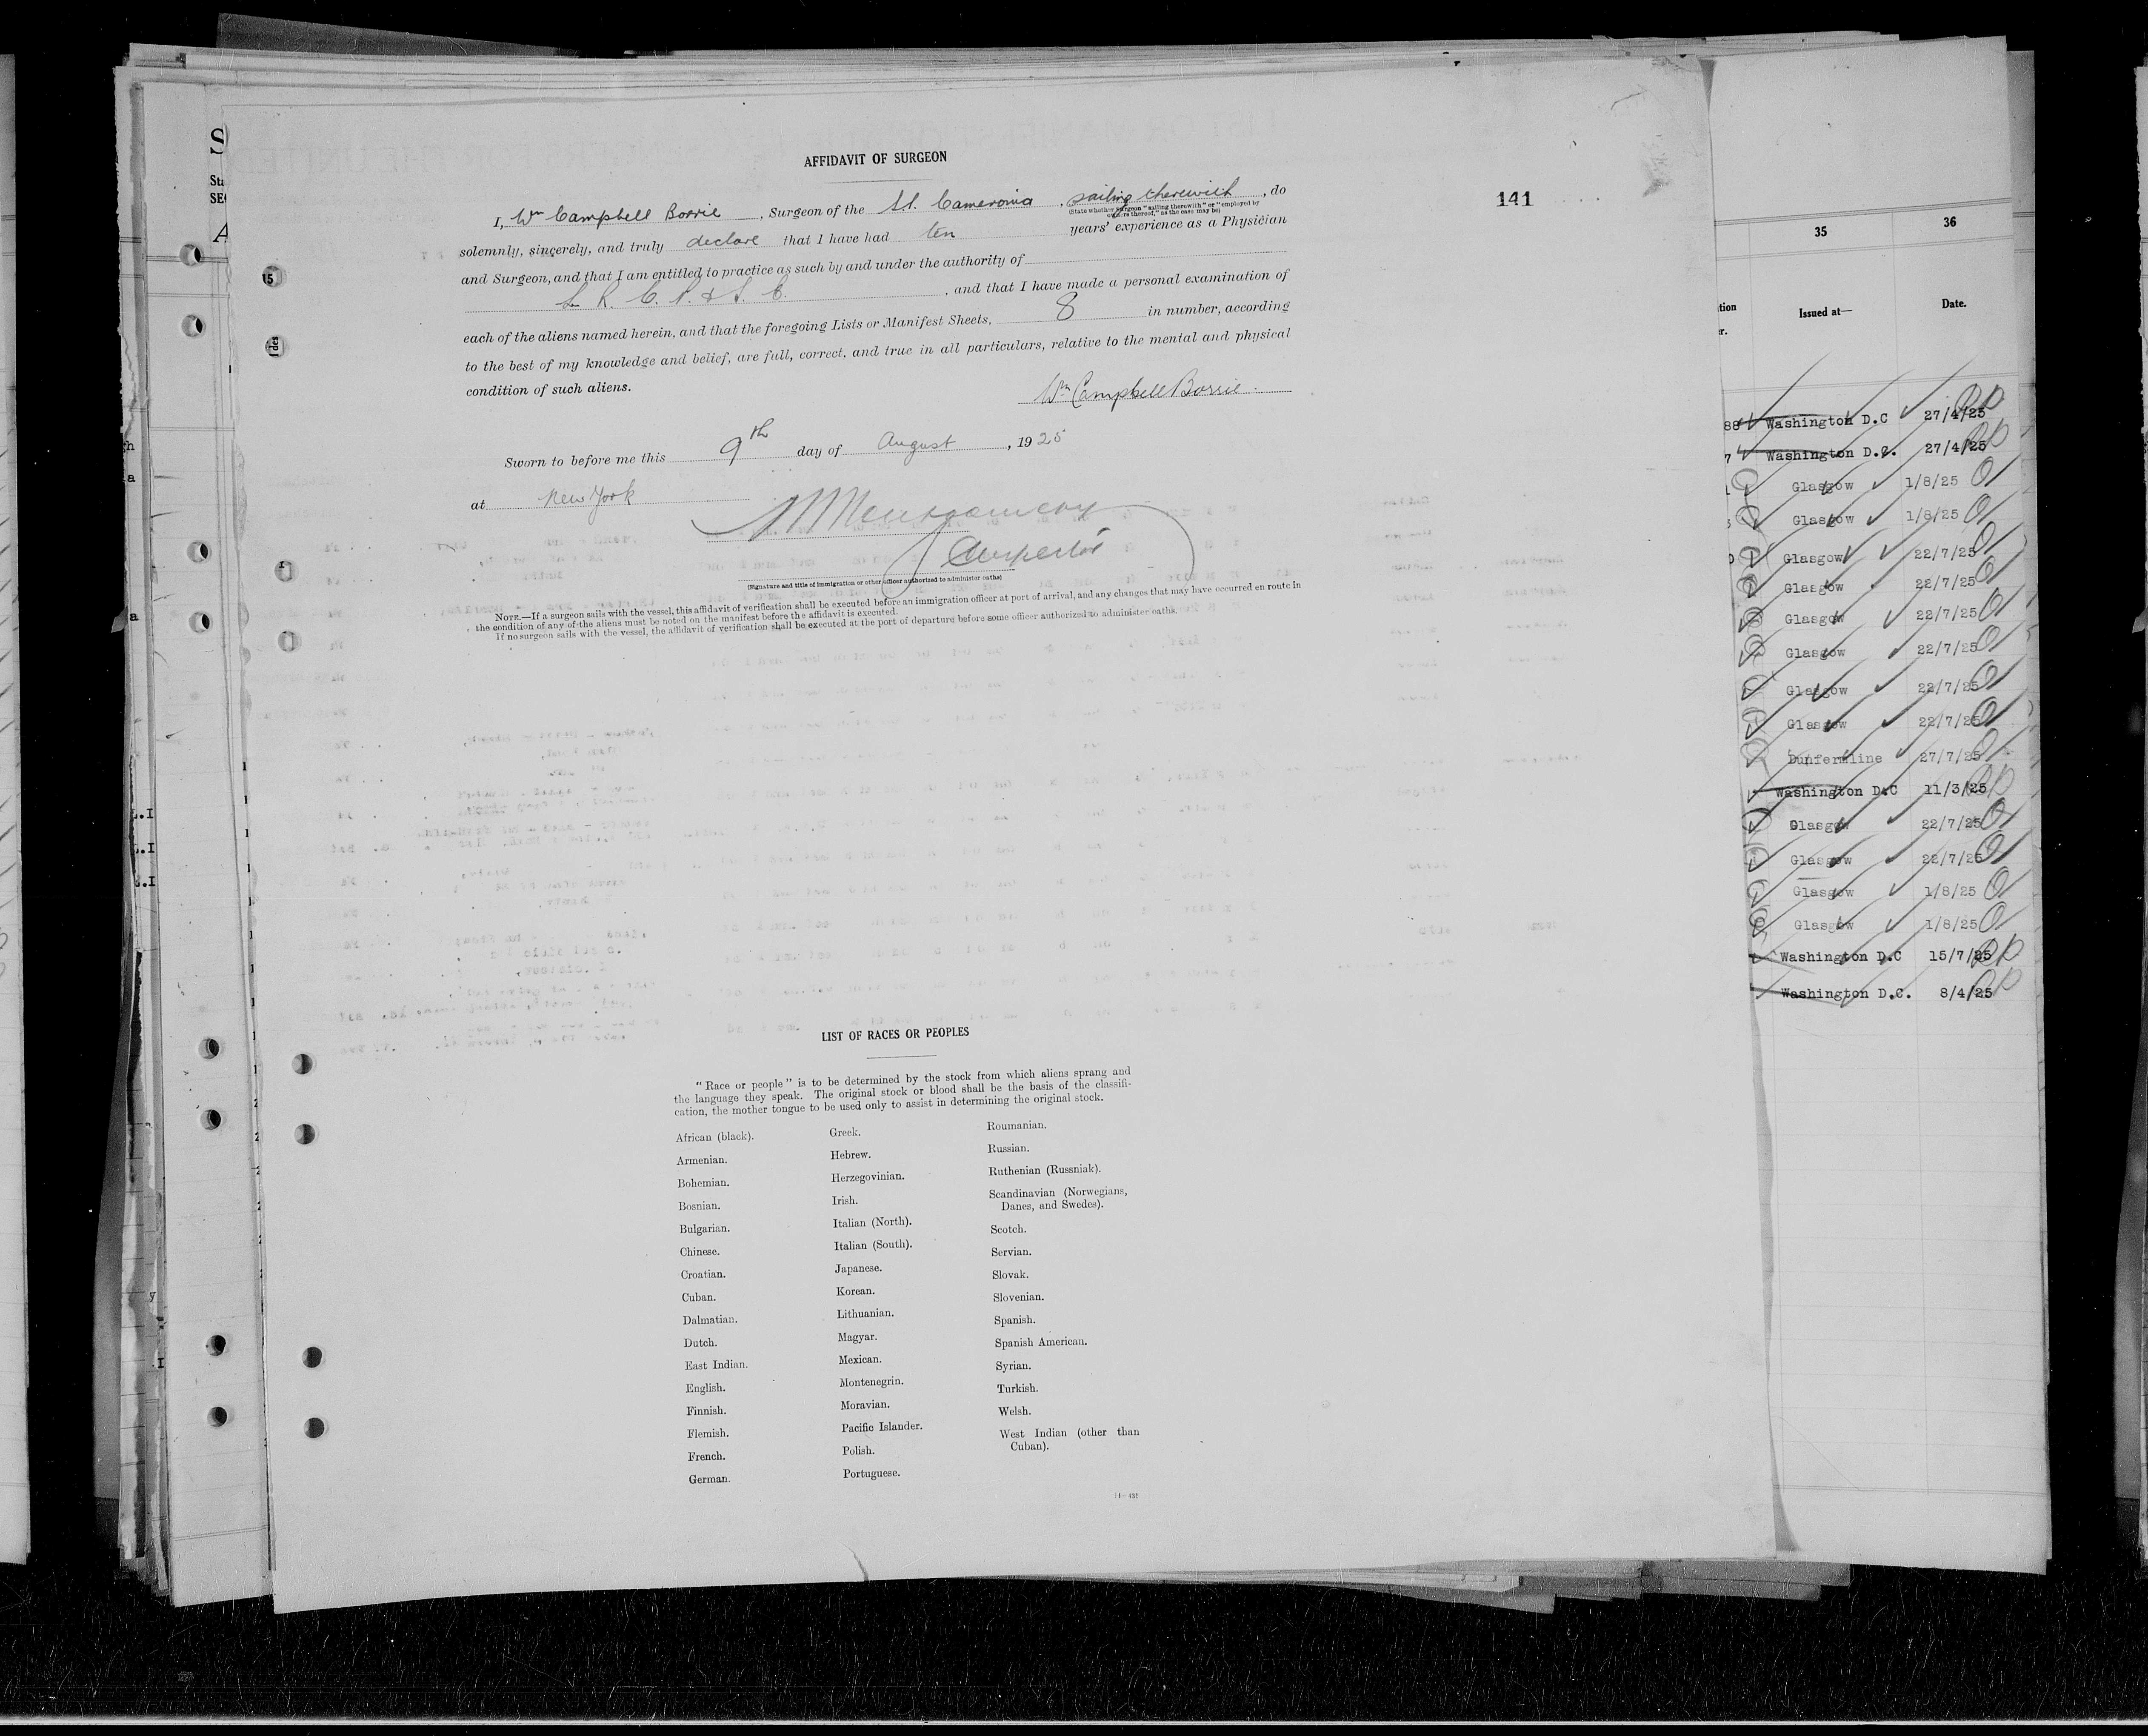 AFFIDAVIT OF SURGEON
141
I, Wm Campbell Borrie, Surgeon of the S.S. Cameronia, sailing therewith, do
(State whether Surgeon "sailing therewith" or "employed by
owners thereof," as the case may be)
solemnly, sincerely, and truly declare that I have had ten years' experience as a Physician
and Surgeon, and that I am entitled to practice as such by and under the authority of
L. R. C. P. & S. E., and that I have made a personal examination of
each of the aliens named herein, and that the foregoing Lists or Manifest Sheets, 8 in number, according
to the best of my knowledge and belief, are full, correct, and true in all particulars, relative to the mental and physical
condition of such aliens.
Wm Campbell Borrie.
Sworn to before me this 9th day of August, 1925
at New York
Inspector
(Signature and title of immigration or other officer authorized to administer oaths)
NOTE.—If a surgeon sails with the vessel, this affidavit of verification shall be executed before an immigration officer at port of arrival, and any changes that may have occurred en route in
the condition of any of the aliens must be noted on the manifest before the affidavit is executed.
If no surgeon sails with the vessel, the affidavit of verification shall be executed at the port of departure before some officer authorized to administer oaths.
LIST OF RACES OR PEOPLES
"Race or people" is to be determined by the stock from which aliens sprang and
the language they speak. The original stock or blood shall be the basis of the classifi-
cation, the mother tongue to be used only to assist in determining the original stock.
African (black).
Armenian.
Bohemian.
Bosnian.
Bulgarian.
Chinese.
Croatian.
Cuban.
Dalmatian.
Dutch.
East Indian.
English.
Finnish.
Flemish.
French.
German.
Greek.
Hebrew.
Herzegovinian.
Irish.
Italian (North).
Italian (South).
Japanese.
Korean.
Lithuanian.
Magyar.
Mexican.
Montenegrin.
Moravian.
Pacific Islander.
Polish.
Portuguese.
Roumanian.
Russian.
Ruthenian (Russniak).
Scandinavian (Norwegians,
Danes, and Swedes).
Scotch.
Servian.
Slovak.
Slovenian.
Spanish.
Spanish American.
Syrian.
Turkish.
Welsh.
West Indian (other than
Cuban).
14—431
35 36
Issued at— Date.
Washington D.C 27/4/25
Washington D.C. 27/4/25
Glasgow 1/8/25
Glasgow 1/8/25
Glasgow 22/7/25
Glasgow 22/7/25
Glasgow 22/7/25
Glasgow 22/7/25
Glasgow 22/7/25
Glasgow 22/7/25
Dunfermline 27/7/25
Washington D.C 11/3/25
Glasgow 22/7/25
Glasgow 22/7/25
Glasgow 1/8/25
Glasgow 1/8/25
Washington D.C 15/7/25
Washington D.C. 8/4/25